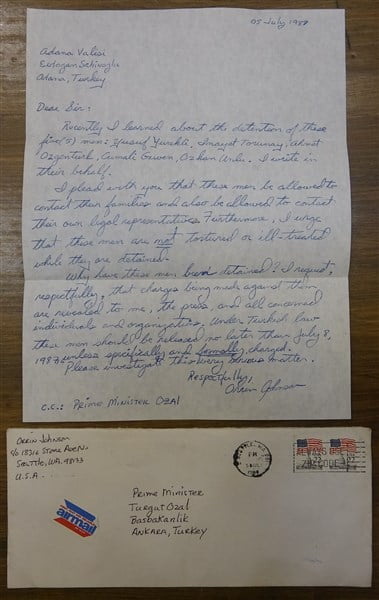 05 July 1987
Adana Valisi
Erdogan
Adana, Turkey
Dear Sir:
Recently I learned about the detention of these
five (5) men: Yusuf Yurekli, Inayet Torunay, Ahmet
Ozgenturk, Cumali Guven, Ozkan Unlu. I write in
their behalf.
I plead with you that these men be allowed to
contact their families and also be allowed to contact
their own legal representatives. Furthermore, I urge
that these men are not tortured or ill-treated
while they are detained.
Why have these men been detained? I request,
respectfully, that charges being made against them
are revealed to me, the press, and all concerned
individuals and organizations. Under Turkish law
these men should be released no later than July 8,
1987 unless specifically and formally charged.
Please investigate this very serious matter.
Respectfully,
Orrin Johnson
C.C.: Prime Minister Ozal
Orrin Johnson
c/o 18316 Stone Ave N.
Seattle, WA. 98133
U.S.A.
airmail
Prime Minister
Turgut Ozal
Basbakanlik
Ankara, Turkey
SEATTLE, WA
PM
ALWAYS USE
ZIP CODE
22